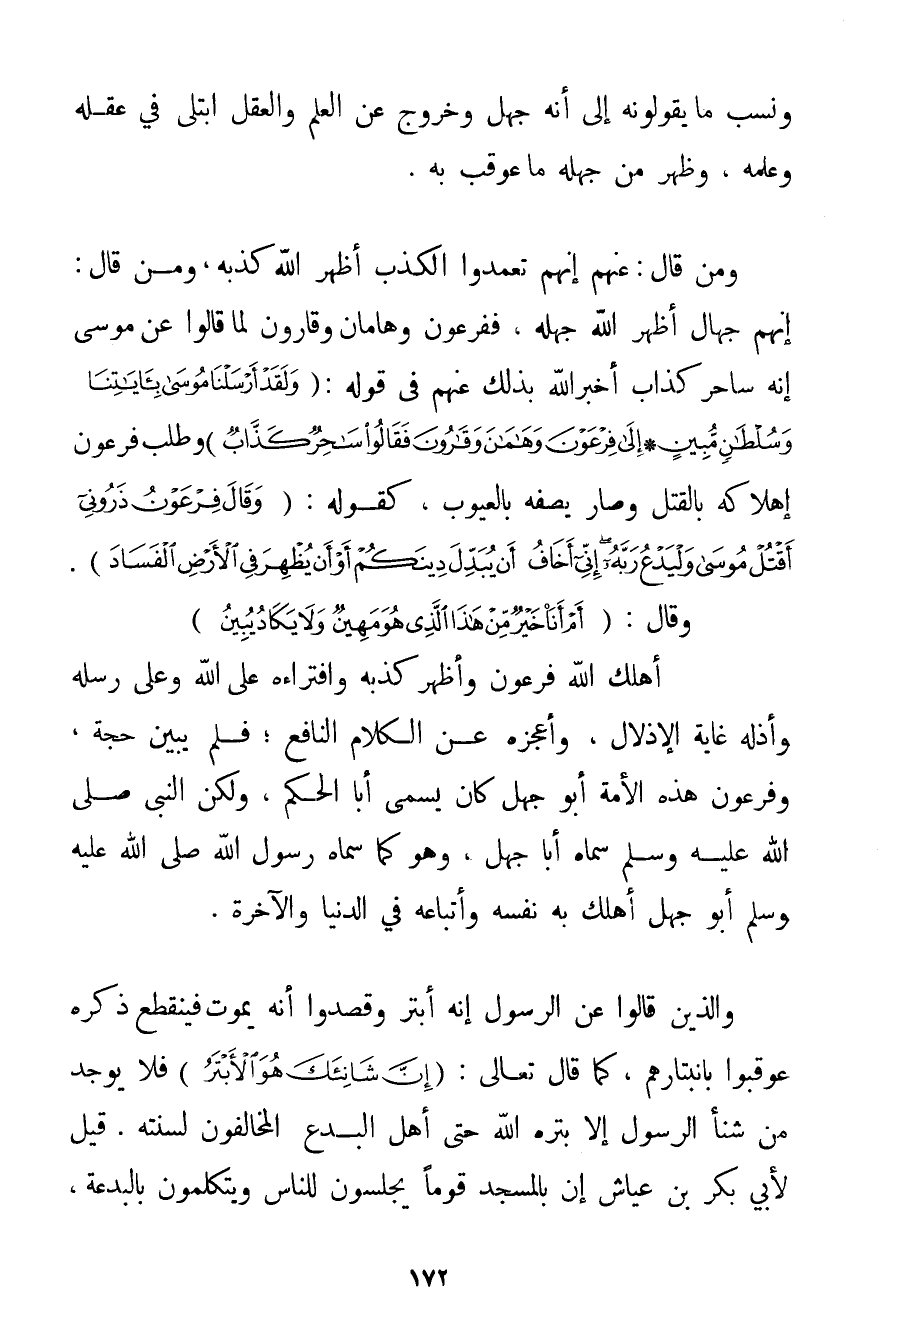 ونسب ما يقولونه إلى أنه جهل وخروج عن العلم والعقل ابتلى في عقله
وعلمه ، وظهر من جهله ما عوقب به .
ومن قال : عنهم إنهم تعمدوا الكذب أظهر الله كذبه ، ومن قال :
إنهم جهال أظهر الله جهله ، ففرعون وهامان وقارون لما قالوا عن موسى
إنه ساحر كذاب أخبر الله بذلك عنهم فى قوله : ( وَلَقَدْ أَرْسَلْنَا مُوسَىٰ بِـَٔايَـٰتِنَا
وَسُلْطَـٰنٍ مُّبِينٍ * إِلَىٰ فِرْعَوْنَ وَهَـٰمَـٰنَ وَقَـٰرُونَ فَقَالُوا۟ سَـٰحِرٌ كَذَّابٌ ) وطلب فرعون
إهلاكه بالقتل وصار يصفه بالعيوب ، كقوله : ( وَقَالَ فِرْعَوْنُ ذَرُونِىٓ
أَقْتُلْ مُوسَىٰ وَلْيَدْعُ رَبَّهُۥٓ ۖ إِنِّىٓ أَخَافُ أَن يُبَدِّلَ دِينَكُمْ أَوْ أَن يُظْهِرَ فِى ٱلْأَرْضِ ٱلْفَسَادَ ) .
وقال : ( أَمْ أَنَا۠ خَيْرٌ مِّنْ هَـٰذَا ٱلَّذِى هُوَ مَهِينٌ وَلَا يَكَادُ يُبِينُ )
أهلك الله فرعون وأظهر كذبه وافتراءه على الله وعلى رسله
وأذله غاية الإذلال ، وأعجزه عن الكلام النافع ؛ فلم يبين حجة ،
وفرعون هذه الأمة أبو جهل كان يسمى أبا الحكم ، ولكن النبى صلى
الله عليه وسلم سماه أبا جهل ، وهو كما سماه رسول الله صلى الله عليه
وسلم أبو جهل أهلك به نفسه وأتباعه في الدنيا والآخرة .
والذين قالوا عن الرسول إنه أبتر وقصدوا أنه يموت فينقطع ذكره
عوقبوا بانبتارهم ، كما قال تعالى : ( إِنَّ شَانِئَكَ هُوَ ٱلْأَبْتَرُ ) فلا يوجد
من شنأ الرسول إلا بتره الله حتى أهل البدع المخالفون لسنته . قيل
لأبي بكر بن عياش إن بالمسجد قوماً يجلسون للناس ويتكلمون بالبدعة ،
١٧٢